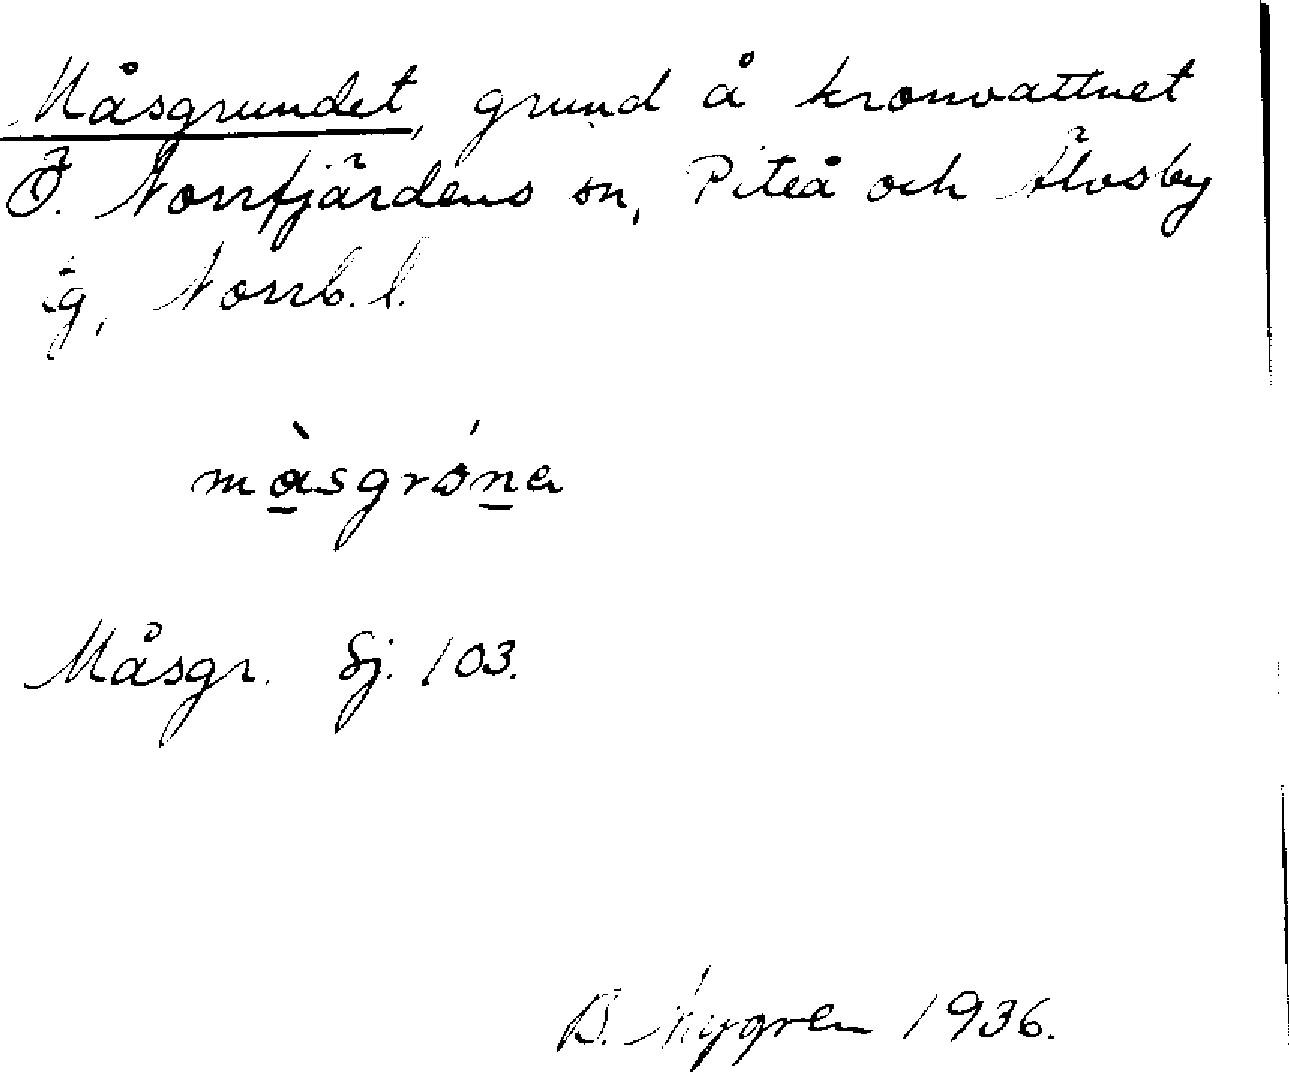 Måsgrundet, grund å kronvattnet
Ö. Norrfjärdens sn, Piteå och Älvsby
tg, Norrb. l.
màsgróna
Måsgr. Sj. 103.
B. Nygren 1936.